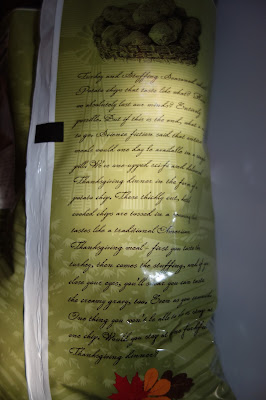 Turkey and Stuffing Seasoned
Potato chips that taste like what? Have
we absolutely lost our minds? Entirely
possible. But if this is the end, what a
to go. Science fiction said that entire
meals would one day be available in a
pill. We've one upped sci-fi and
Thanksgiving dinner in the form of
potato chip. These thickly cut,
cooked chips are tossed in a
tastes like a traditional American
Thanksgiving meal - first you taste the
turkey, then comes the stuffing, and if you
close your eyes, you'll swear you can taste
the creamy gravy, too.
One thing you won't be able to is stop
one chip. Would you stop at one forkful
Thanksgiving dinner?